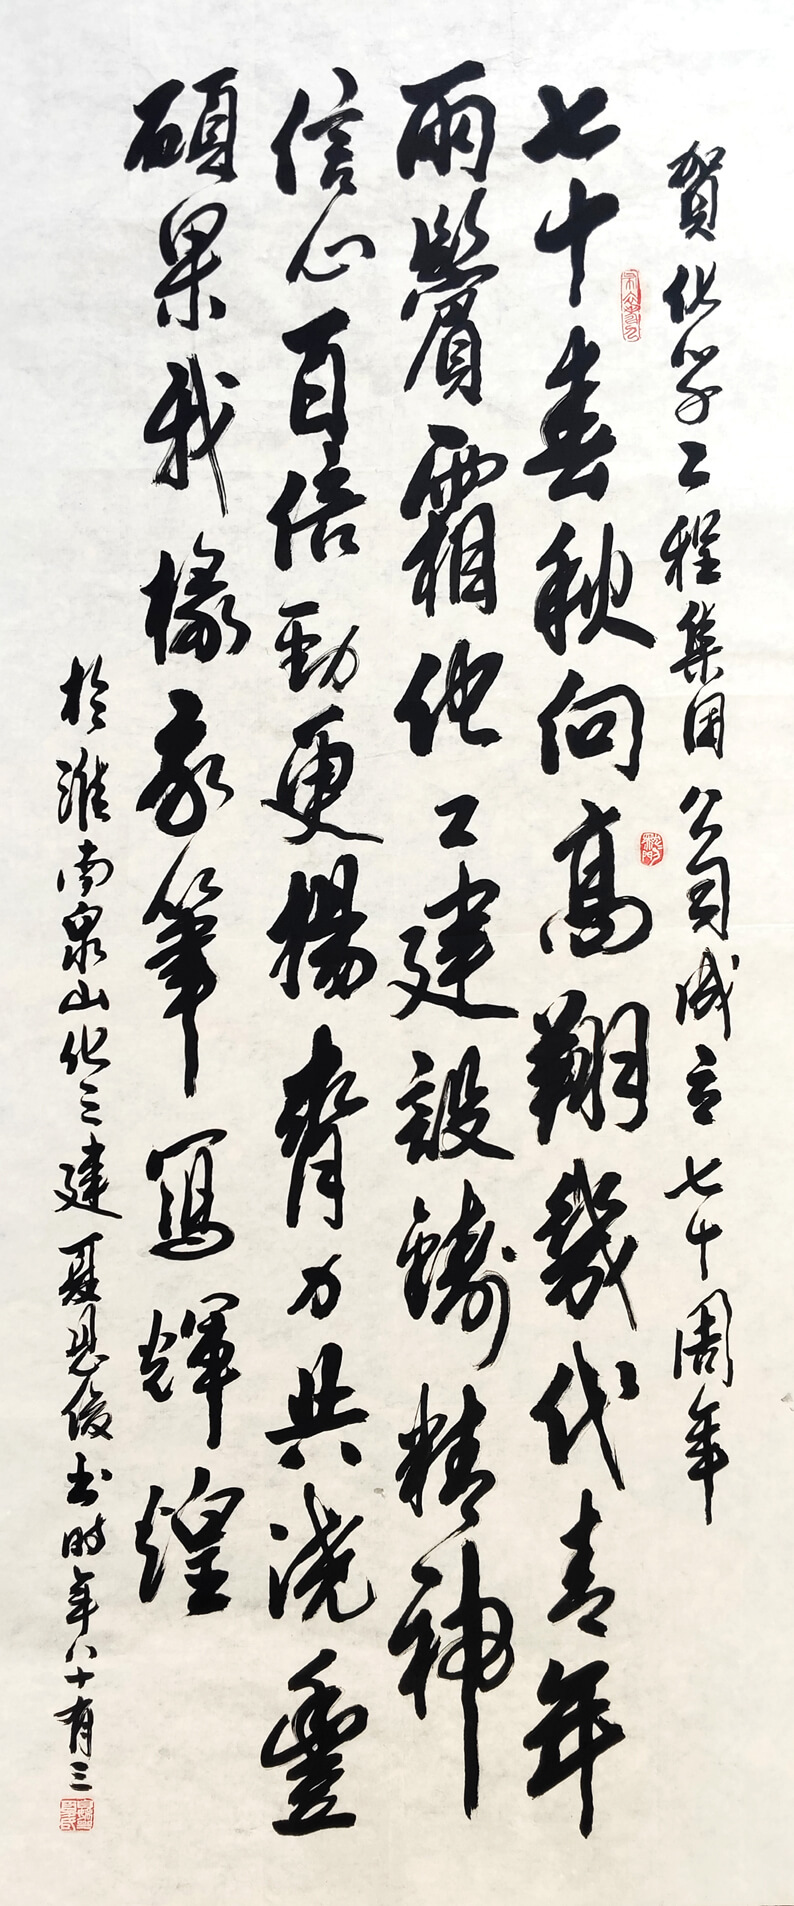 賀化学工程集团公司成立七十周年
七十春秋向高翔幾代青年
兩鬢霜他工建設鑄精神
信心百倍勁更揚齊力共澆豐
碩果我椽家筆寫輝煌
於淮南泉山化三建夏恩俊书时年八十有三